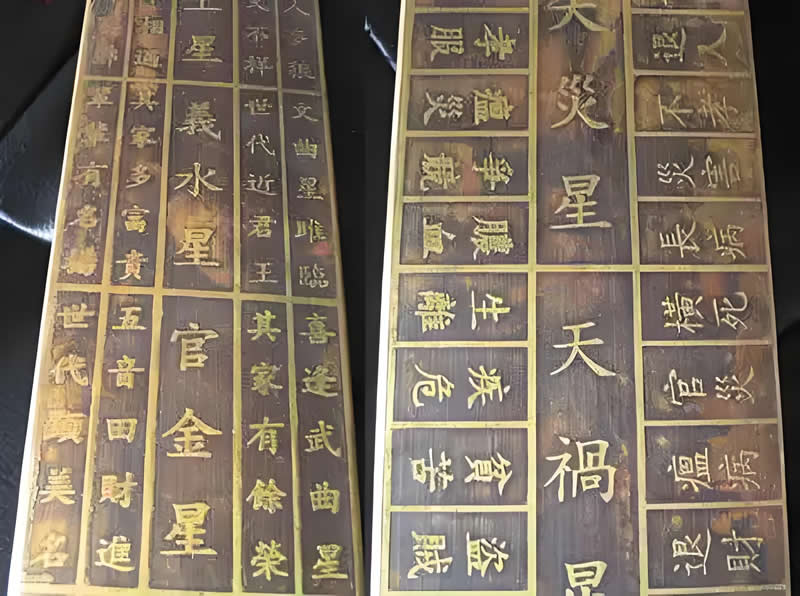 星
文曲星唯臨
世代近君王
義水星
其家多富貴
有名揚
喜逢武曲星
其家有餘榮
官金星
五音田財進
世代顯美名
天災星
天禍星
退人
不孝
災害
長病
橫死
官災
瘟病
退財
孝服
瘟災
爭
膿血
生離
疾危
貧苦
盜賊